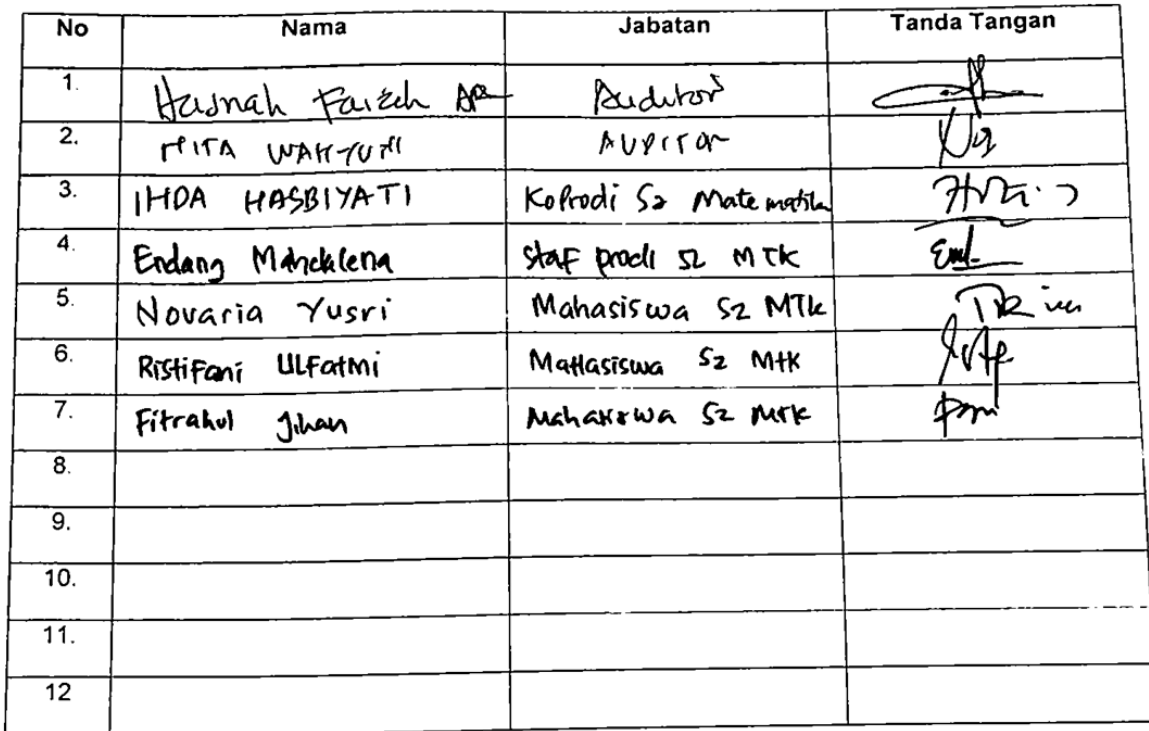 No Nama Jabatan Tanda Tangan
1. Hasnah Faizah AR Auditor
2. MITA WAHYUNI AUDITOR
3. IHDA HASBIYATI Koprodi S2 Matematika
4. Endang Mandalena Staf prodi S2 MTK
5. Novaria Yusri Mahasiswa S2 MTK
6. Ristifani Ulfatmi Mahasiswa S2 MtK
7. Fitrahul Jihan Mahasiswa S2 MTK
8.
9.
10.
11.
12